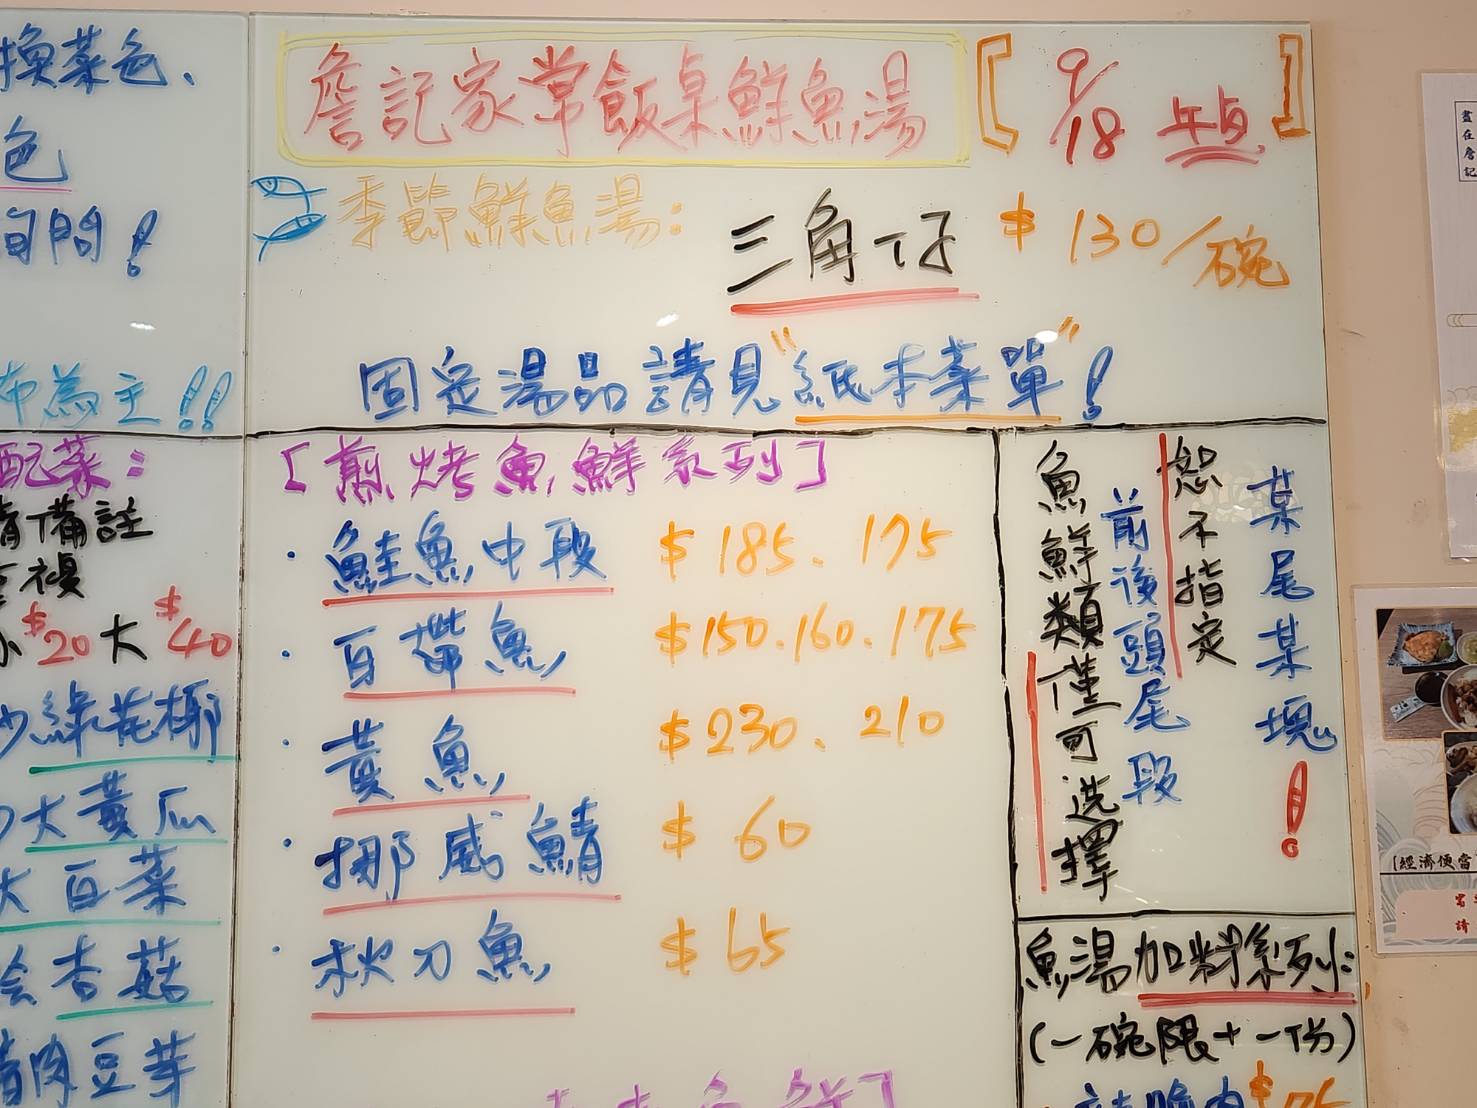 換菜色、
色
詢問!
布為主!!
配菜:
請備註
$20大$40
炒綠花椰
炒大黃瓜
大白菜
燴香菇
精肉豆芽
詹記家常飯桌鮮魚湯
[9/18 午餐]
季節鮮魚湯:
三角仔 $130/碗
固定湯品請見"紙本菜單"!
[煎烤魚鮮系列]
·鮭魚中段 $185、175
·白帶魚 $150.160.175
·黃魚 $230、210
·挪威鯖 $60
·秋刀魚 $65
魚鮮類僅可選擇
前後頭尾段
恕不指定
某尾某塊!
魚湯加料系列:
(一碗限+一份)
盡在詹記
[經濟便當
請